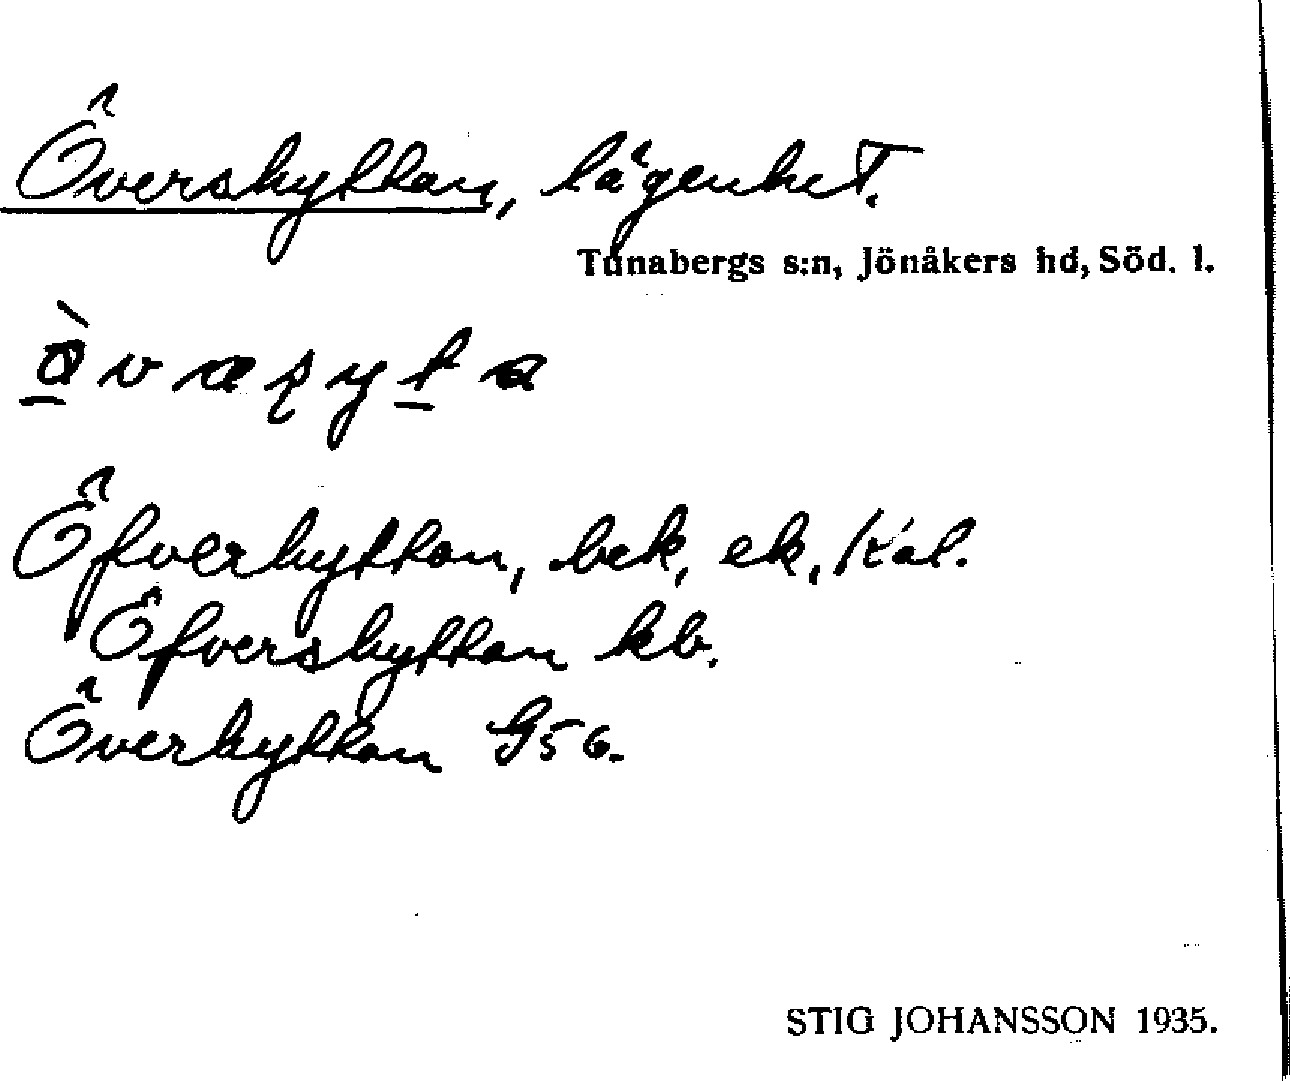 Övershyttan, lägenhet.
Tunabergs s:n, Jönåkers hd, Söd. l.
Öfverhyttan, bek, ek, Kal.
Öfvershyttan kb.
Överhyttan G56.
STIG JOHANSSON 1935.